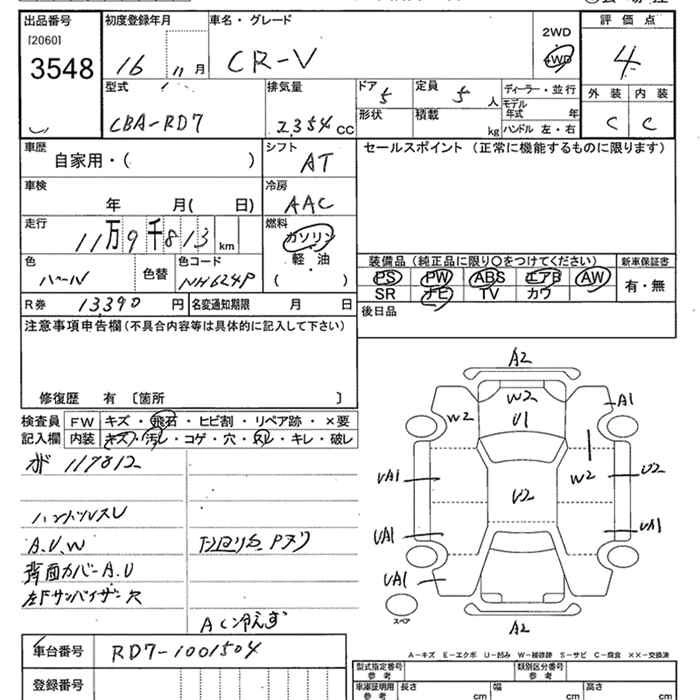 出品番号 初度登録年月 車名・グレード 評価点
[2060] 2WD
3548 16 11月 CR-V 4WD 4
型式 排気量 ドア 5 定員 5 人 ディーラー・並行 外装 内装
形状 積載 kg モデル年式 年
CBA-RD7 2,354 CC ハンドル 左・右 C C
車歴 シフト セールスポイント (正常に機能するものに限ります)
自家用・( ) AT
車検 冷房
年 月( 日) AAC
走行 燃料
11万9千813 km ガソリン
軽・油
( )
色 色替 色コード 装備品 (純正品に限り〇をつけてください) 新車保証書
パール NH624P PS PW ABS エアB AW 有・無
SR ナビ TV カワ
R券 13,390 円 名変通知期限 月 日
後日品
注意事項申告欄 (不具合内容等は具体的に記入して下さい)
修復歴 有 〔箇所 〕
検査員 FW キズ・飛石・ヒビ割・リペア跡・×要
記入欄 内装 キズ・汚レ・コゲ・穴・灰レ・キレ・破レ
117812
ハンドルスレ
A.U.W
背面カバーA.U
左Fサンバイザー穴
A C冷えず
A2
W2 W2 A1
U1
UA1 U2 W2 U2
UA1 UA1
UA1
スペア
A2
車台番号 RD7-1001504
登録番号
A-キズ E-エクボ U-凹み W-補修跡 S-サビ C-腐食 ××-交換済
型式指定番号 参考 類別区分番号 参考
車庫証明用 参考 長さ cm 幅 cm 高さ cm